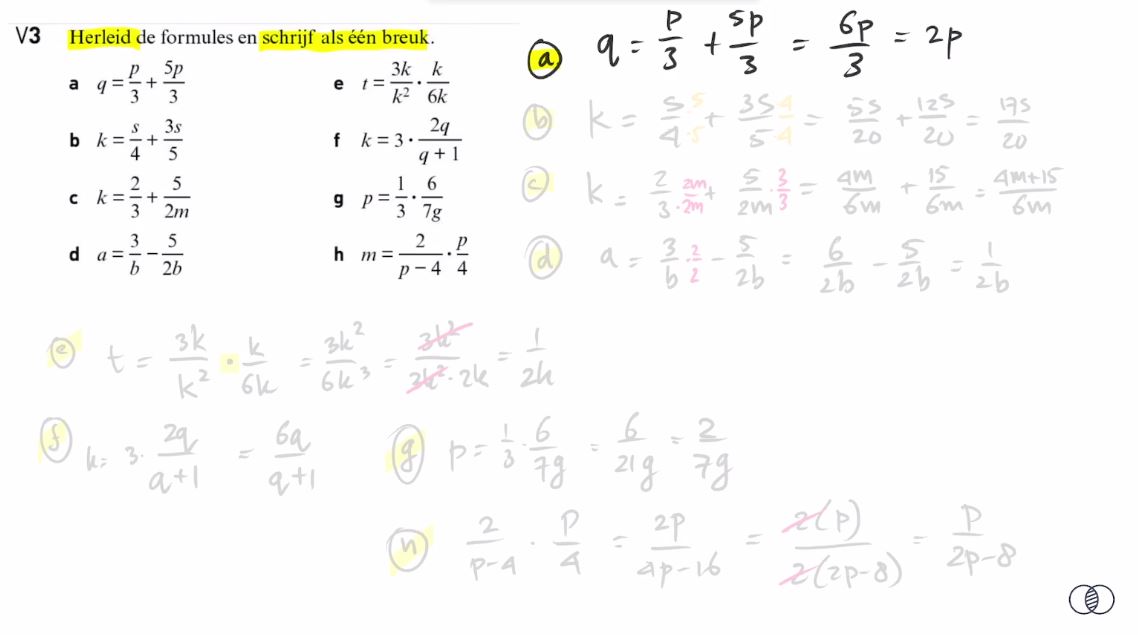 V3 Herleid de formules en schrijf als één breuk.
a q = p/3 + 5p/3
b k = s/4 + 3s/5
c k = 2/3 + 5/2m
d a = 3/b − 5/2b
e t = 3k/k² · k/6k
f k = 3 · 2q/(q + 1)
g p = 1/3 · 6/7g
h m = 2/(p − 4) · p/4
a q = p/3 + 5p/3 = 6p/3 = 2p
b k = s·5/4·5 + 3s·4/5·4 = 5s/20 + 12s/20 = 17s/20
c k = 2/3 · 2m/2m + 5/2m · 3/3 = 4m/6m + 15/6m = (4m+15)/6m
d a = 3/b · 2/2 − 5/2b = 6/2b − 5/2b = 1/2b
e t = 3k/k² · k/6k = 3k²/6k³ = 3k²/(3k² · 2k) = 1/2k
f k = 3 · 2q/(q+1) = 6q/(q+1)
g p = 1/3 · 6/7g = 6/21g = 2/7g
h 2/(p−4) · p/4 = 2p/(4p−16) = 2(p)/2(2p−8) = p/(2p−8)